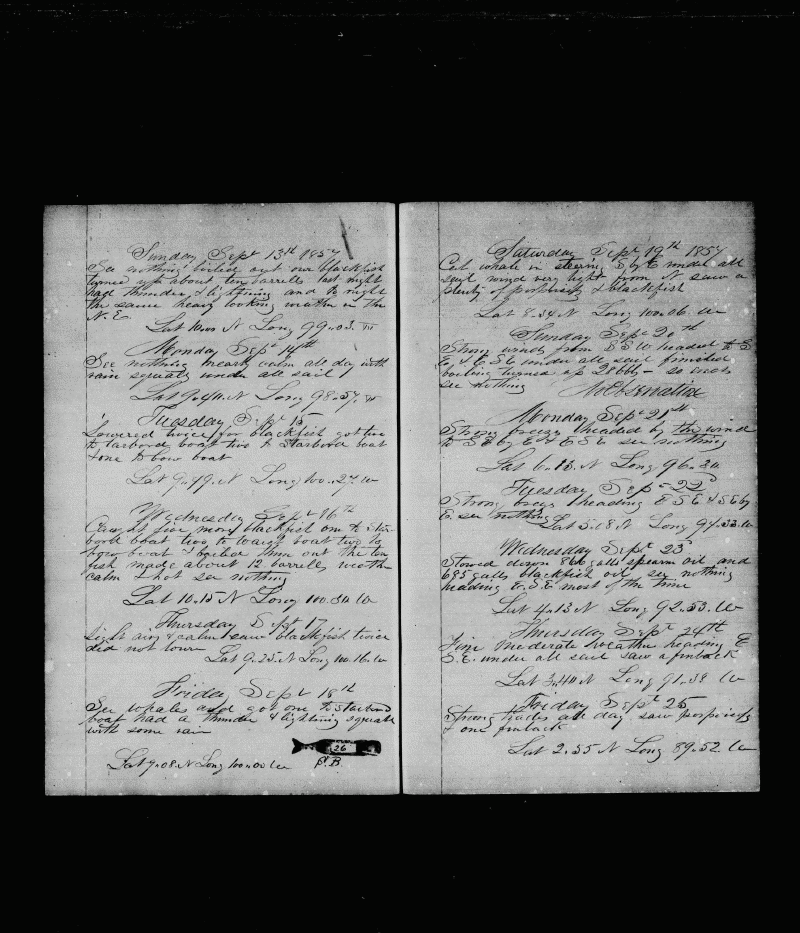 Sunday Sept 13th 1857
See nothing boiled out our blackfish
turned up about ten barrels last night
had thunder & lightning and to night
the same heavy looking weather in the
N. E.
Lat 10.00 N Long 99.03. W
Monday Sept 14th
See nothing nearly calm all day with
rain squalls under all sail
Lat 9.40 N Long 98.57. W
Tuesday Sept 15
Lowered twice for blackfish got two
to larbord boat two to starbord boat
& one to bow boat
Lat 9.49. N Long 100.27. W
Wednesday Sept 16th
Caught five more blackfish one to star-
bord boat two to waist boat two to
bow boat & boiled them out the ten
fish made about 12 barrells weather
calm & hot see nothing
Lat 10.15 N Long 100.30 W
Thursday Sept 17
Light airs & calm saw blackfish twice
did not lower
Lat 9.25. N Long 100.16. W
Friday Sept 18th
See whales and got one to starbord
boat had a thunder & lightning squall
with some rain
Lat 9.08 N Long 100.00 W
26
S. B.
Saturday Sept 19th 1857
Cut whale in steering S by E under all
sail wind very light from N saw a
plenty of porpoises & blackfish
Lat 8.34 N Long 100.06. W
Sunday Sept 20th
Strong winds from S S W headed to S
E & E S E under all sail finished
boiling turned up 28 bbls - so ends
see nothing
No Observation
Monday Sept 21st
Strong breezes headed by the wind
to S E by E & E S E see nothing
Lat 6.13 N Long 96.30
Tuesday Sept 22
Strong breeze heading E S E & S E by
E. see nothing
Lat 5.18 N Long 94.33. W
Wednesday Sept 23
Stowed down 866 galls spearm oil and
685 galls blackfish oil see nothing
heading E. S. E most of the time
Lat 4.13 N Long 92.53. W
Thursday Sept 24th
Fine moderate weather heading E
S. E. under all sail saw a finback
Lat 3.40 N Long 91.38 W
Friday Sept 25
Strong trades all day saw porpoises
& one finback
Lat 2.35 N Long 89.52. W